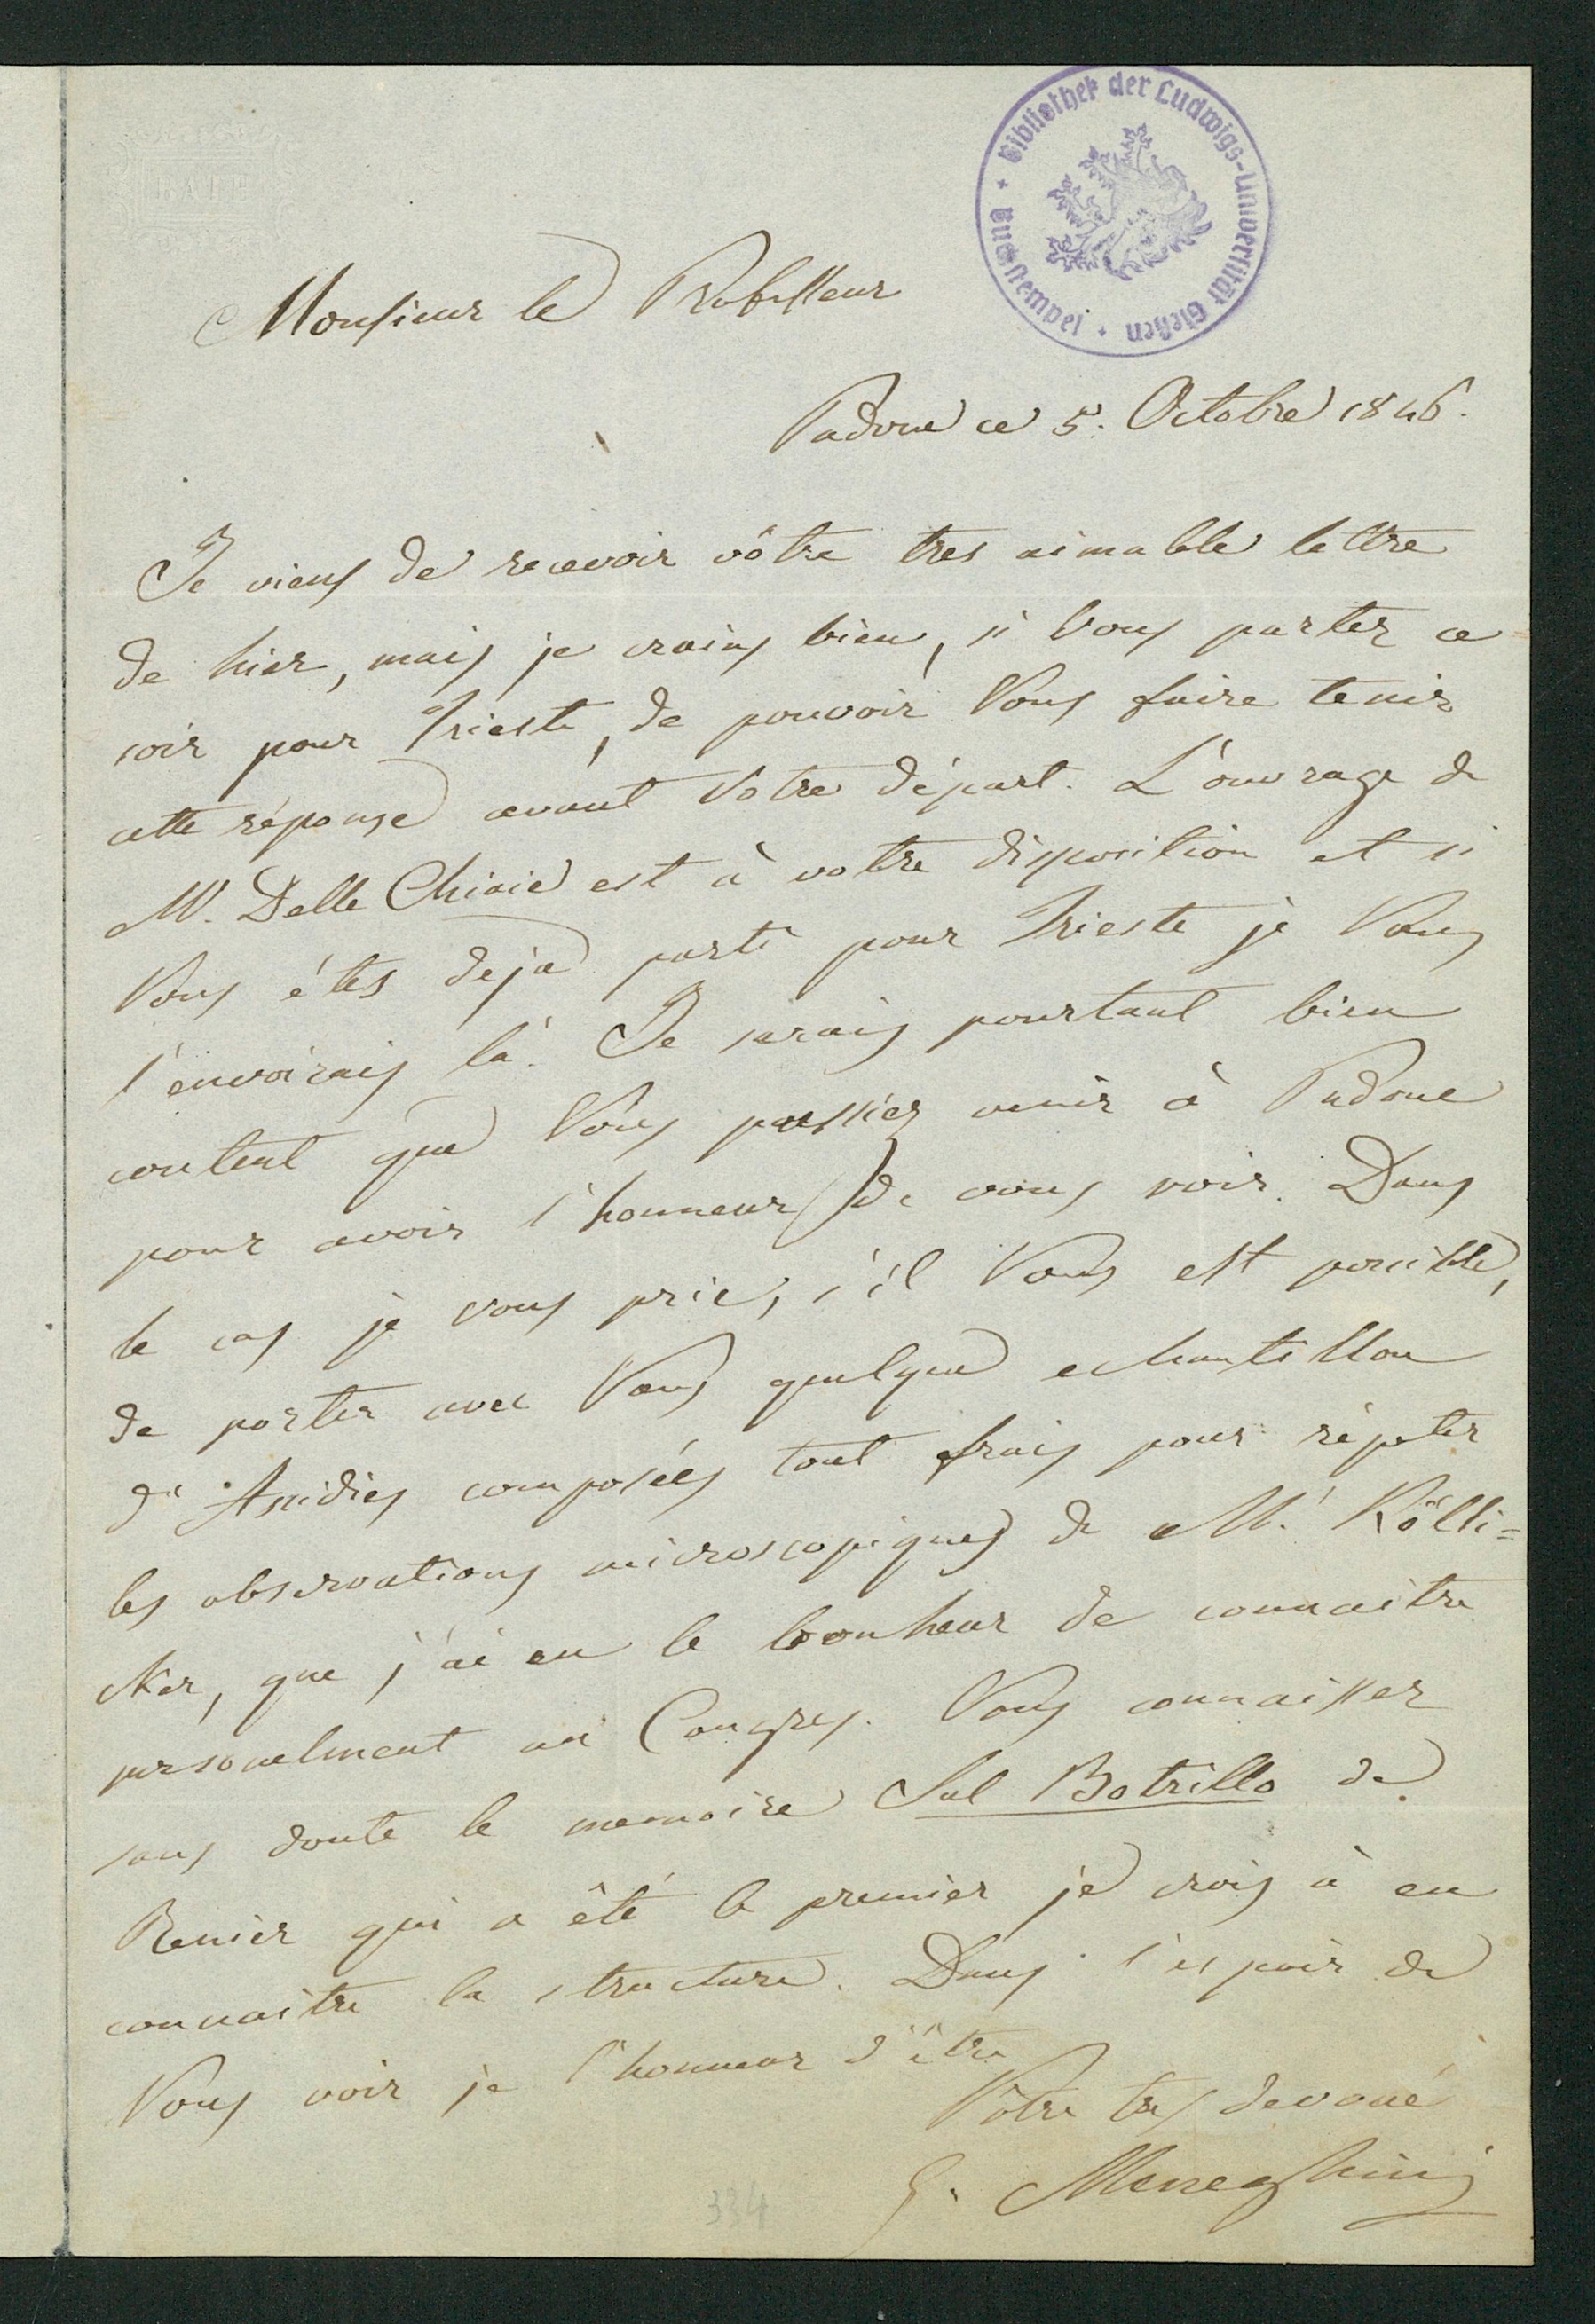 Bibliothek der Ludwigs-Universität Gießen + Buchstempel +
BATH
Monsieur le Professeur
Padoue ce 5. Octobre 1846.
Je viens de recevoir vôtre tres aimable lettre
de hier, mais je crains bien, si Vous partez ce
soir pour Trieste, de pouvoir Vous faire tenir
cette réponse avant Votre départ. L'ouvrage de
Mr. Delle Chiaie est à votre disposition et si
Vous étes deja parti pour Trieste je Vous
l'envoirais là. Je serais pourtant bien
content que Vous passiez venir à Padoue
pour avoir l'honneur de vous voir. Dans
le cas je vous prie, s'il Vous est possible,
de porter avec Vous quelque echantillon
d'Ascidies composées tout frais pour répeter
les observations microscopiques de Mr. Kölli=
ker, que j'ai eu le bonheur de connaitre
personelment au Congres. Vous connaissez
sans doute le memoire Sul Botrillo de
Renier qui a été le premier je crois à en
connaitre la structure. Dans l'espoir de
Vous voir je l'honneur d'être
Vôtre tres devoué
G. Meneghini
334